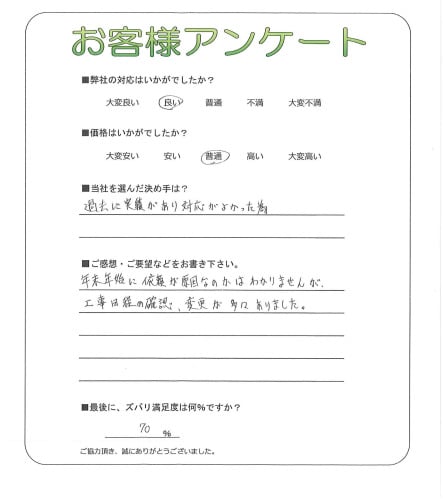 お客様アンケート
■弊社の対応はいかがでしたか？
大変良い 良い 普通 不満 大変不満
■価格はいかがでしたか？
大変安い 安い 普通 高い 大変高い
■当社を選んだ決め手は？
過去に実績があり対応がよかった為
■ご感想・ご要望などをお書き下さい。
年末年始に依頼が原因なのかはわかりませんが、
工事日程の確認、変更が多々ありました。
■最後に、ズバリ満足度は何％ですか？
70 ％
ご協力頂き、誠にありがとうございました。